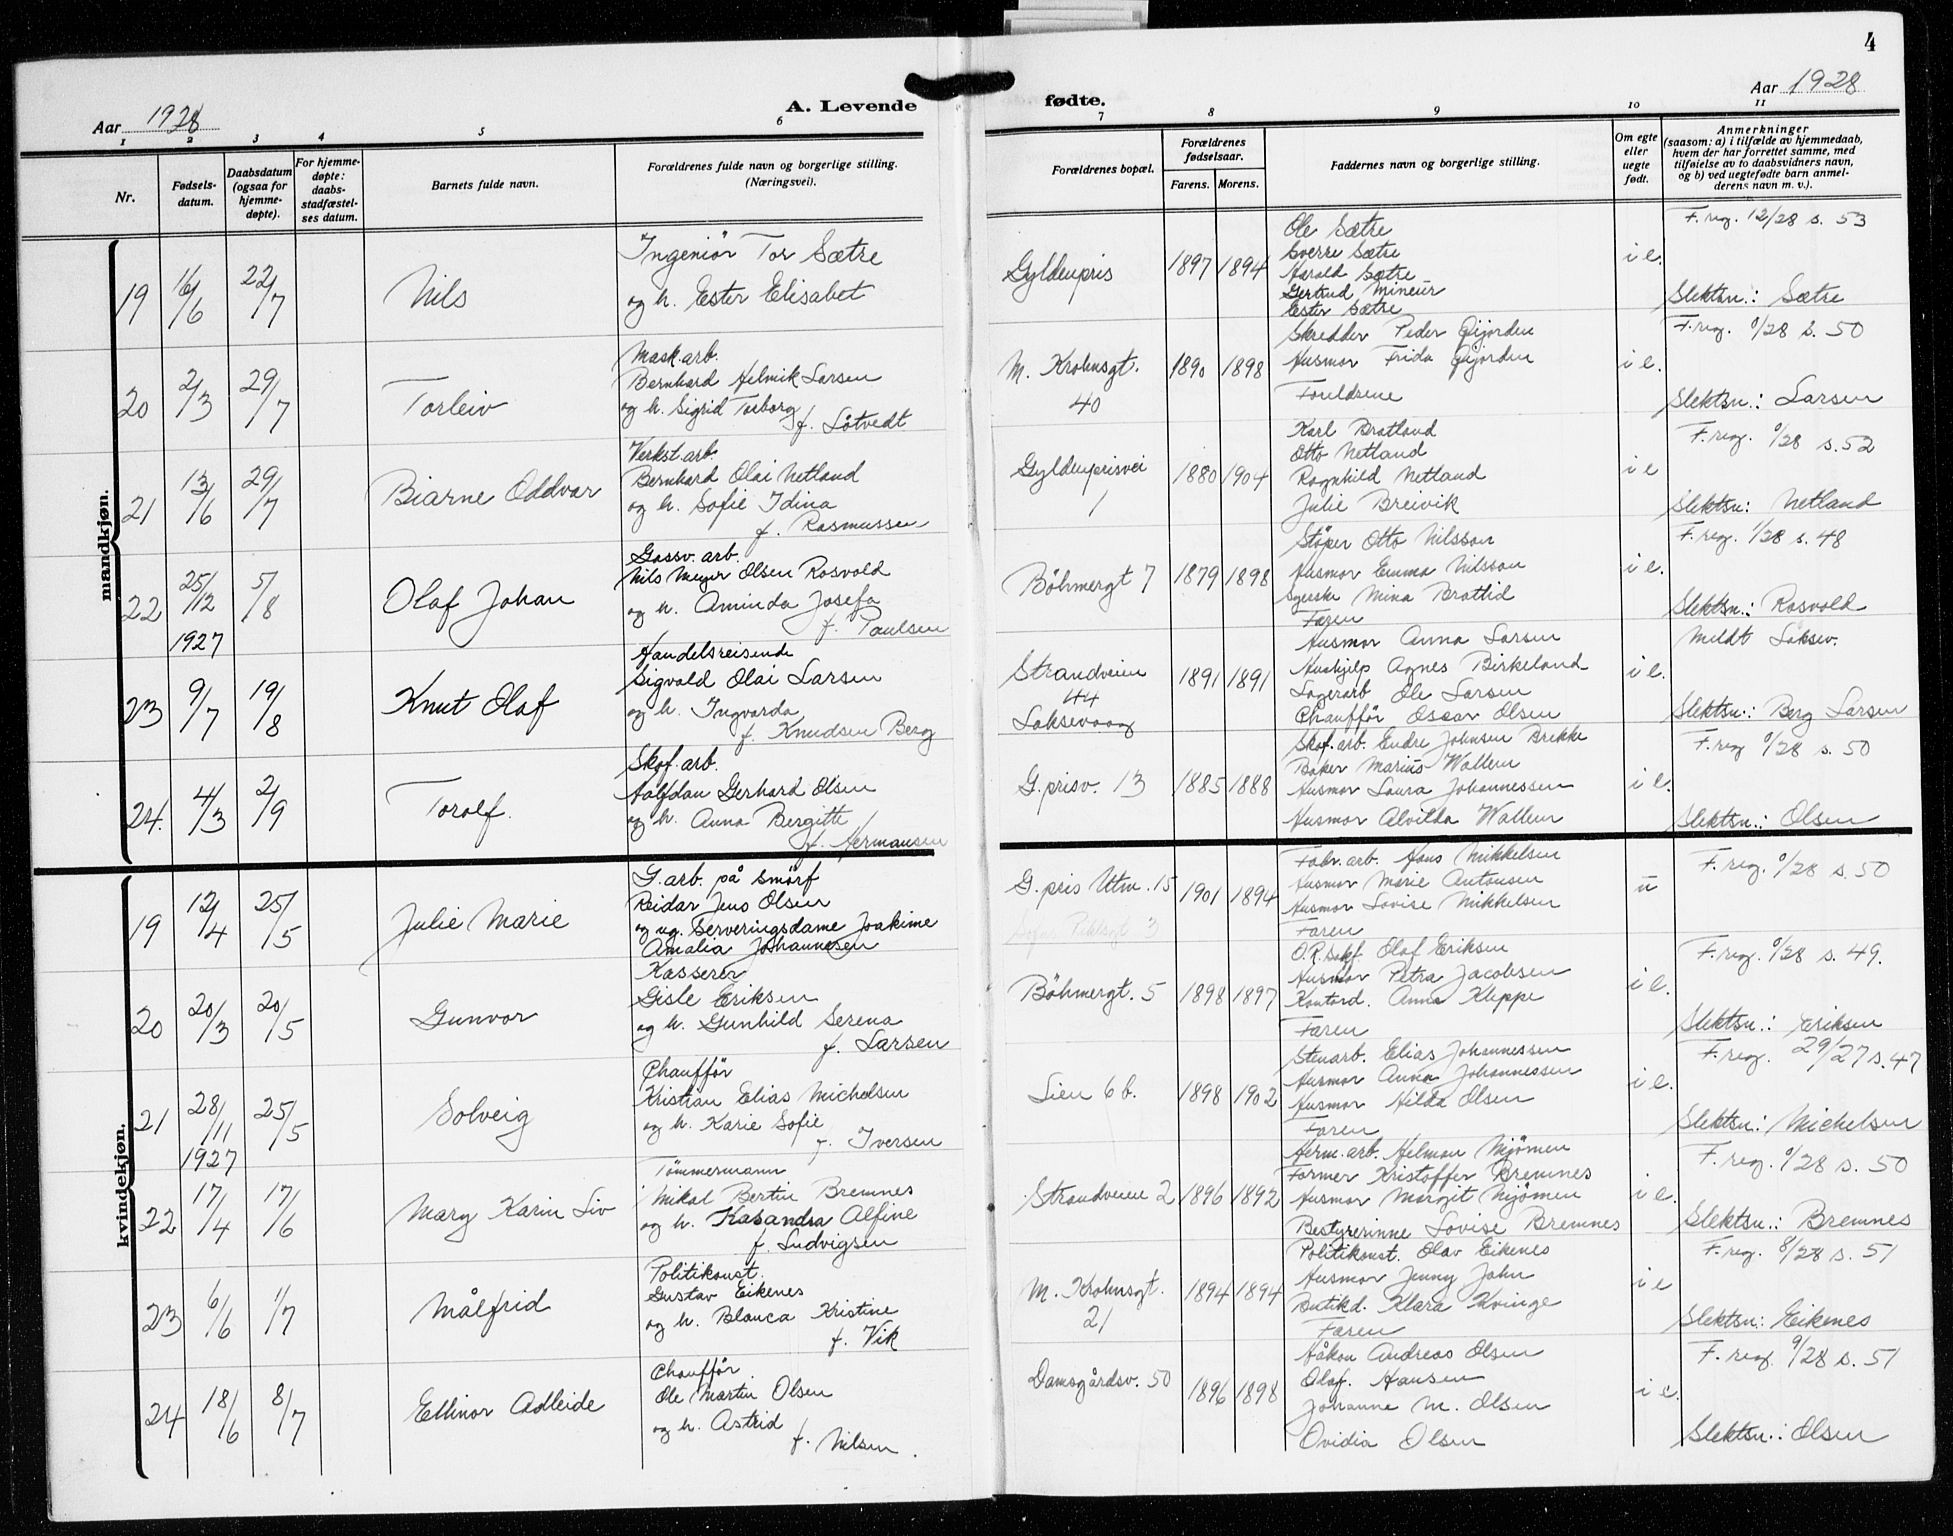 4
Aar 1928
A. Levende
fødte.
Aar 1928
1 2 3 4 5 6 7 8 9 10 11
Nr.
Fødsels-
datum.
Daabsdatum
(ogsaa for
hjemme-
døpte).
For hjemme-
døpte:
daabs-
stadfæstel-
ses datum.
Barnets fulde navn.
Forældrenes fulde navn og borgerlige stilling.
(Næringsvei).
Forældrenes bopæl.
Forældrenes
fødselsaar.
Farens. Morens.
Faddernes navn og borgerlige stilling.
Om egte
eller
uegte
født.
Anmerkninger
(saasom: a) i tilfælde av hjemmedaab,
hvem der har forrettet samme, med
tilføielse av to daabsvidners navn,
og b) ved uegtefødte barn anmel-
derens navn m. v.).
mandkjøn.
19 16/6 22/7 Nils
Ingeniør Tor Sætre
og h. Ester Elisabet
Gyldenpris
1897 1894
Ole Sætre
Sverre Sætre
Harald Sætre
Gertrud Mineur
Ester Sætre
i e.
F. reg. 12/28 s. 53
Slektsn.: Sætre
20 2/3 29/7 Torleiv
Mask.arb.
Bernhard Helmik Larsen
og h. Sigrid Torborg
f. Låtvedt
M. Krohnsgt.
40
1890 1898
Skredder Peder Gijorden
Husmor Frida Gijorden
Foreldrene
i e.
F. reg. 0/28 s. 50
Slektsn.: Larsen
21 13/6 29/7 Biarne Oddvar
Verkst.arb.
Bernhard Olai Netland
og h. Sofie Idina
f. Rasmussen
Gyldenprisvei
1
1880 1904
Karl Bratland
Otto Netland
Ragnhild Netland
Julie Breivik
i e
F. reg. 0/28 s. 52
Slektsn: Netland
22 25/12 1927 5/8 Olaf Johan
Gassv. arb.
Nils Meyer Olsen Rosvold
og h. Aminda Josefa
f. Paulsen
Böhmergt 7
1879 1898
Støper Otto Nilsson
Husmor Emma Nilsson
Syerske Mina Brattid
Faren
i e.
F. reg. 1/28 s. 48
Slektsn.: Rosvold
23 9/7 19/8 Knut Olaf
Handelsreisende
Sigvald Olai Larsen
og h. Ingvarda
f. Knudsen Berg
Strandveien
44
Laksevaag
1891 1891
Husmor Anna Larsen
Hushjelp Agnes Birkeland
Lagerarb Ole Larsen
Chauffør Oscar Olsen
i e.
Meldt Laksev.
Slektsn.: Berg Larsen
24. 4/3 2/9 Torolf.
Skof. arb.
Halfdan Gerhard Olsen
og h. Anna Bergitte
f. Hermansen
G. prisv. 13
1885 1888
Skof. arb. Endre Johnsen Brekke
Baker Marius Wallem
Husmor Laura Johannessen
Husmor Alvilda Wallem
i e.
F. reg 0/28 s. 50
Slektsn.: Olsen
kvindekjøn.
19 12/4 25/5 Julie Marie
G. arb. på Smörf
Reidar Jens Olsen
og ug. Serveringsdame Joakime
Amalia Johannesen
G. pris Utm. 15
1901 1894
Fabr. arb. Hans Mikkelsen
Husmor Marie Antonsen
Husmor Lovise Mikkelsen
Faren
u
F. reg. 0/28 s. 50
20 20/3 20/5 Gunvor
Kasserer
Gisle Eriksen
og h. Gunhild Serena
f. Larsen
Böhmergt. 5
1898 1897
Olaf Eriksen
Husmor Petra Jacobsen
Kontord. Anna Kleppe
Faren
i e.
F. reg. 0/28 s. 49.
Slektsn.: Eriksen
21 28/11 1927 25/5 Solveig
Chauffør
Kristian Elias Michelsen
og h. Karie Sofie
f. Iversen
Lien 6 b.
1898 1902
Stenarb. Elias Johannessen
Husmor Anna Johannessen
Husmor Hilda Olsen
Faren
i e.
F. reg. 29/27 s. 47
Slektsn: Michelsen
22 17/4 17/6 Mary Karin Liv
Tømmermann
Mikal Bertin Bremnes
og h. Kasandra Alfine
f. Ludvigsen
Strandveien 2
1896 1892
Herm. arb. Helman Mjömen
Former Kristoffer Bremnes
Husmor Margit Mjömen
Bestyrerinne Lovise Bremnes
i e.
F. reg. 0/28 s. 50
Slektsn.: Bremnes
23 6/6 1/7 Målfrid
Politikonst.
Gustav Eikenes
og h. Blanca Kristine
f. Vik
M. Krohnsgt.
21
1894 1894
Politikonst. Olav Eikenes
Husmor Jenny John
Butikd. Klara Kvinge
Faren
i e
F. reg. 8/28 s. 51
Slektsn: Eikenes
24 18/6 8/7 Ellinor Adleide
Chauffør
Ole Martin Olsen
og h. Astrid
f. Nilsen.
Damsgårdsv. 50
1896 1898
Håkon Andreas Olsen
Olaf. Hansen
Johanne M. Olsen
Ovidia Olsen
i e.
F. reg. 9/28 s. 51
Slektsn.: Olsen